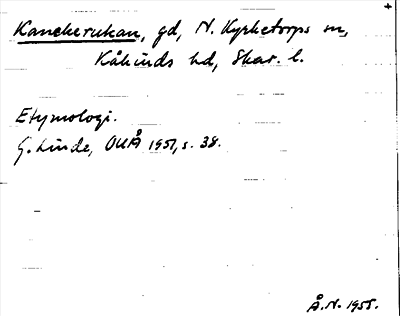 Kancherukan, gd, N. Kyrketorps sn,
Kåkinds hd, Skar. l.
Etymologi.
G. Linde, OUÅ 1951, s. 38.
Å.N. 1955.